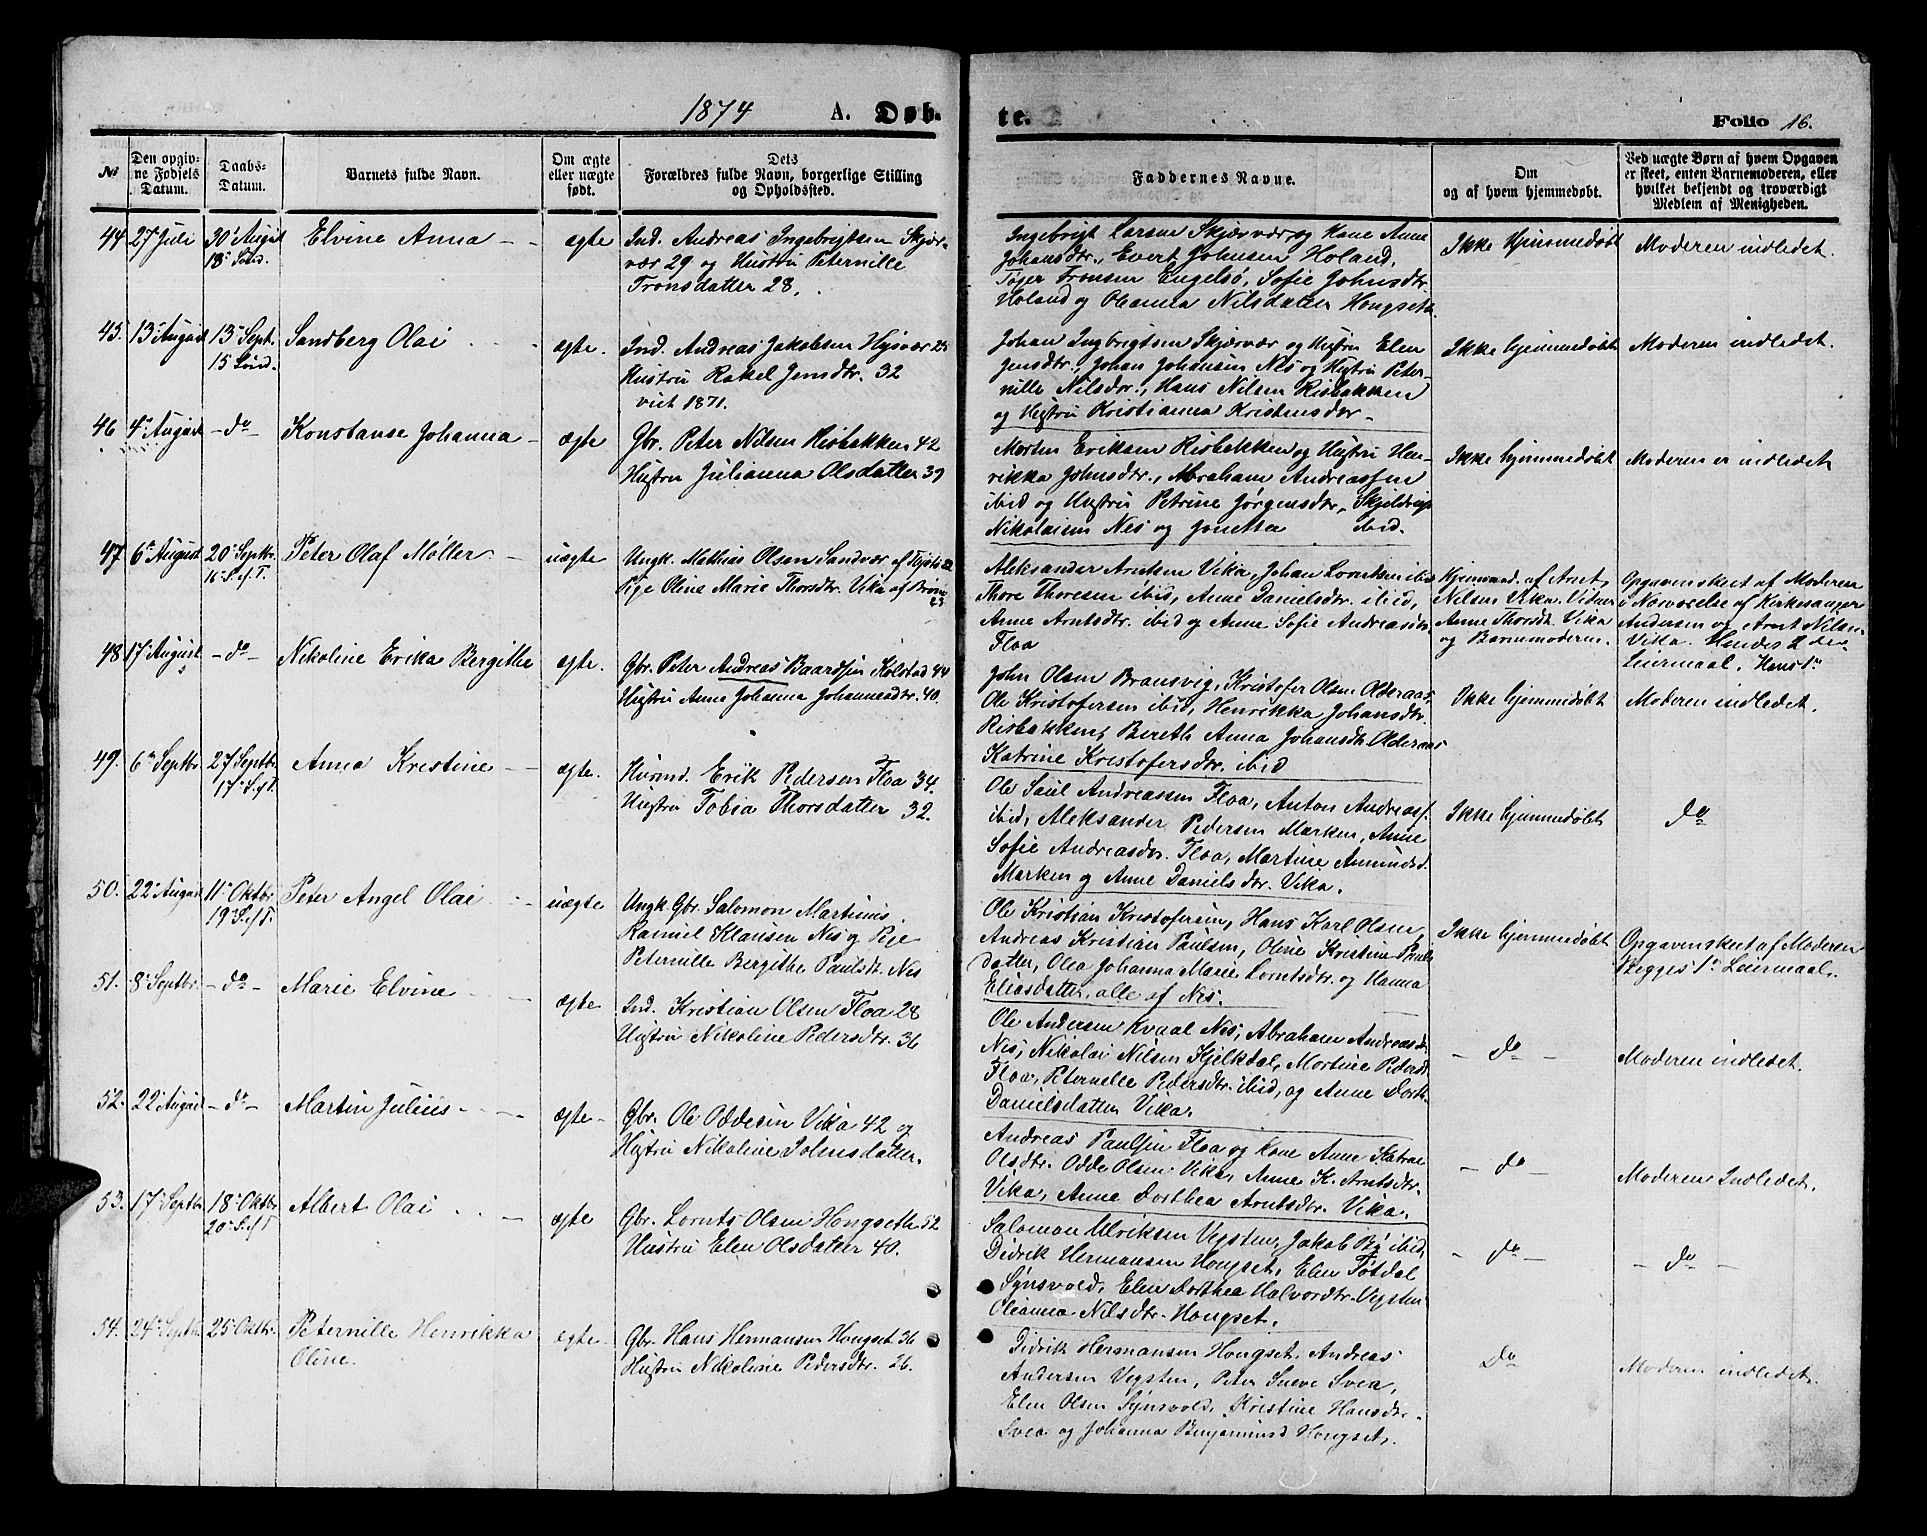 1874 A. Døb-
te.
Folio 16.
No
Den opgiv-
ne Fødsels
Datum.
Daabs-
Datum.
Barnets fulde Navn.
Om ægte
eller uægte
født.
Dets
Forældres fulde Navn, borgerlige Stilling
og Opholdssted.
Faddernes Navne.
Om
og af hvem hjemmedøbt.
Ved uægte Børn af hvem Opgaven
er skeet, enten Barnemoderen, eller
hvilket bekjendt og troværdigt
Medlem af Menigheden.
44 27 Juli 30 August Elvine Anna - - ægte Ind. Andreas Ingebrigtsen Skjær-
18 Sønd.
vær 29 og Hustru Peternille
Tronsdatter 28.
Ingebrigt Larsen Skjærvær og Kone Anne
Johansdtr., Evert Johnsen Holand,
Tøger Tronsen Engelsø, Sofie Johnsdtr.
Holand og Oleanna Nilsdatter Hongseth
Ikke hjemmedøbt
Moderen indledet.
45. 13 August 13 Sept. Sandberg Olai - - ægte. Ind. Andreas Jakobsen Hysvær 25
15 Sønd.
Hustru Rakel Jensdtr. 32
viet 1871.
Johan Ingbrigtsen Skjærvær og Hustru Elen
Jensdtr., Johan Johansen Nes og Hustru Peter-
nille Nilsdtr., Hans Nilsen Risbakken
og Hustru Kristianna Kristensdtr -
Ikke hjemmedøbt
Moderen indledet.
46 4 August - do - Konstanse Johanna - ægte Gbr. Peter Nilsen Risbakken 42
Hustru Julianna Olsdatter 39
Morten Eriksen Risbakken og Hustru Hen-
rikka Johnsdtr., Abraham Andreassen
ibid og Hustru Petrine Jørgensdtr,
Nikolaisen Nes og Jonetta ibid.
Ikke hjemmedøbt
Moderen er indledet
47 6 August 20 Septbr. Peter Olaf Møller - uægte Ungk. Mathias Olsen Sandvær af
16 S. ef T.
Pige Oline Marie Thorsdtr. Vika af
Aleksander Arntsen Vika, Johan Lorntsen ibid
Thore Thoresen ibid, Anne Danielsdtr. ibid,
Anne Arntsdtr. ibid og Anne Sofie Andreasdtr.
Floa
Hjemmed. af Arnt
Nilsen Vika. Vidner
Anne Thorsdt. Vika
og Barnemoderen.
Opgaven skeet af Moderen
i Nærværelse af Kirkesanger
Andersen og Arnt Nilsen
Vika. Hendes 2det
Leiermaal. Hans 1ste
48 17 August - do - Nikoline Erika Bergithe ægte. Gbr. Peter Andreas Baardsen Kolstad 44
Hustru Anne Johanna Johannesdtr. 40.
John Olsen Bransvig, Kristofer Olsen Olderaas,
Ole Kristofersen ibid, Henrikka Johansdtr.
Risbakken, Bereth Anna Johansdt. Olderaas
Katrine Kristofersdtr. ibid
Ikke hjemmedøbt
Moderen indledet.
49. 6 Septbr. 27 Septbr. Anna Kristine - ægte. Husmd. Erik Pedersen Floa 34.
17 S. ef T.
Hustru Tobia Thorsdatter 32.
Ole Saul Andreassen Floa, Anton Andreass.
ibid, Aleksander Pedersen Marken, Anne
Sofie Andreasdtr. Floa, Martine Amundsd.
Marken og Anne Daniels dtr. Vika.
Ikke hjemmedøbt
do
50. 22 August 11 Oktbr. Peter Angel Olai - - uægte Ungk. Gbr. Salomon Martinus
19 S. ef T.
Ramel Klausen Nes og Pige
Peternille Bergithe Paulsdt. Nes
Ole Kristian Kristofersen, Hans Karl Olsen,
Andreas Kristian Paulsen, Oline Kristine Pauls
datter, Olea Johanna Marie Lorntsdtr. og Hanna
Eliasdatter, alle af Nes.
Ikke hjemmedøbt
Opgaven skeet af Moderen
Begges 1ste Leiermaal.
51. 8 Septbr. - do - Marie Elvine - - ægte Ind. Kristian Olsen Floa 28
Hustru Nikoline Pedersdtr. 36
Ole Andersen Kvaal Nes, Abraham Andreasdr.
Nes, Nikolai Nilsen Kjelkdal, Martine Pedersd
Floa, Peternelle Pedersdtr. ibid, og Anne Dorth.
Danielsdatter Vika.
- do -
Moderen indledet.
52. 22 August - do - Martin Julius - - - ægte - Gbr. Ole Oddesen Vika 42 og
Hustru Nikoline Johnsdatter.
Andreas Paulsen Floa og Kone Anne Katrine
Olsdtr. Odde Olsen Vika, Anne K. Arntsdtr.
Vika, Anne Dorthea Arntsdtr. Vika.
- do -
Moderen Indledet.
53. 17 Septbr 18 Oktbr Albert Olai - - ægte Gbr. Lornts Olsen Hongseth 52
20 S. ef T
Hustru Elen Olsdatter 40.
Salomon Ulriksen Vegsten, Jakob By ibid,
Didrik Hermansen Hongset, Elen Tøtdal
Synsvold, Elen Dorthea Halvordtr. Vegsten
Oleanna Nilsdtr. Hongset.
- do -
- do -
54. 24 Septbr 25 Oktbr. Peternille Henrikka ægte Gbr. Hans Hermansen Hongset 36
Oline.
Hustru Nikoline Pedersdtr. 26.
Didrik Hermansen Hongset, Andreas
Andersen Vegsten, Peter Sneve Svea,
Elen Olsen Synsvold, Kristine Hansdtr.
Svea og Johanna Benjaminsd Hongset,
do
Moderen indledet.